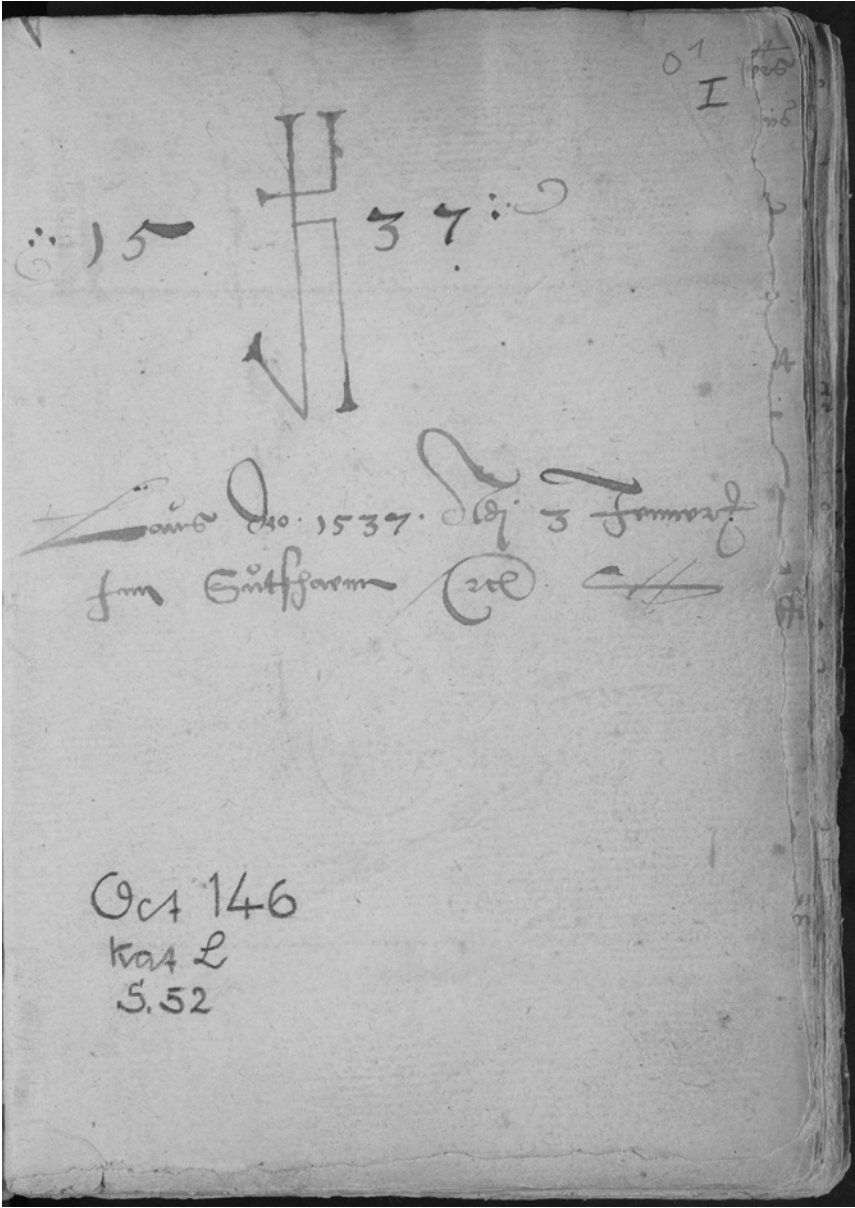 01
I
15 37
Laus Deo. 1537. Adj. 3 Jenner
Inn
Oct 146
Kat L
S. 52